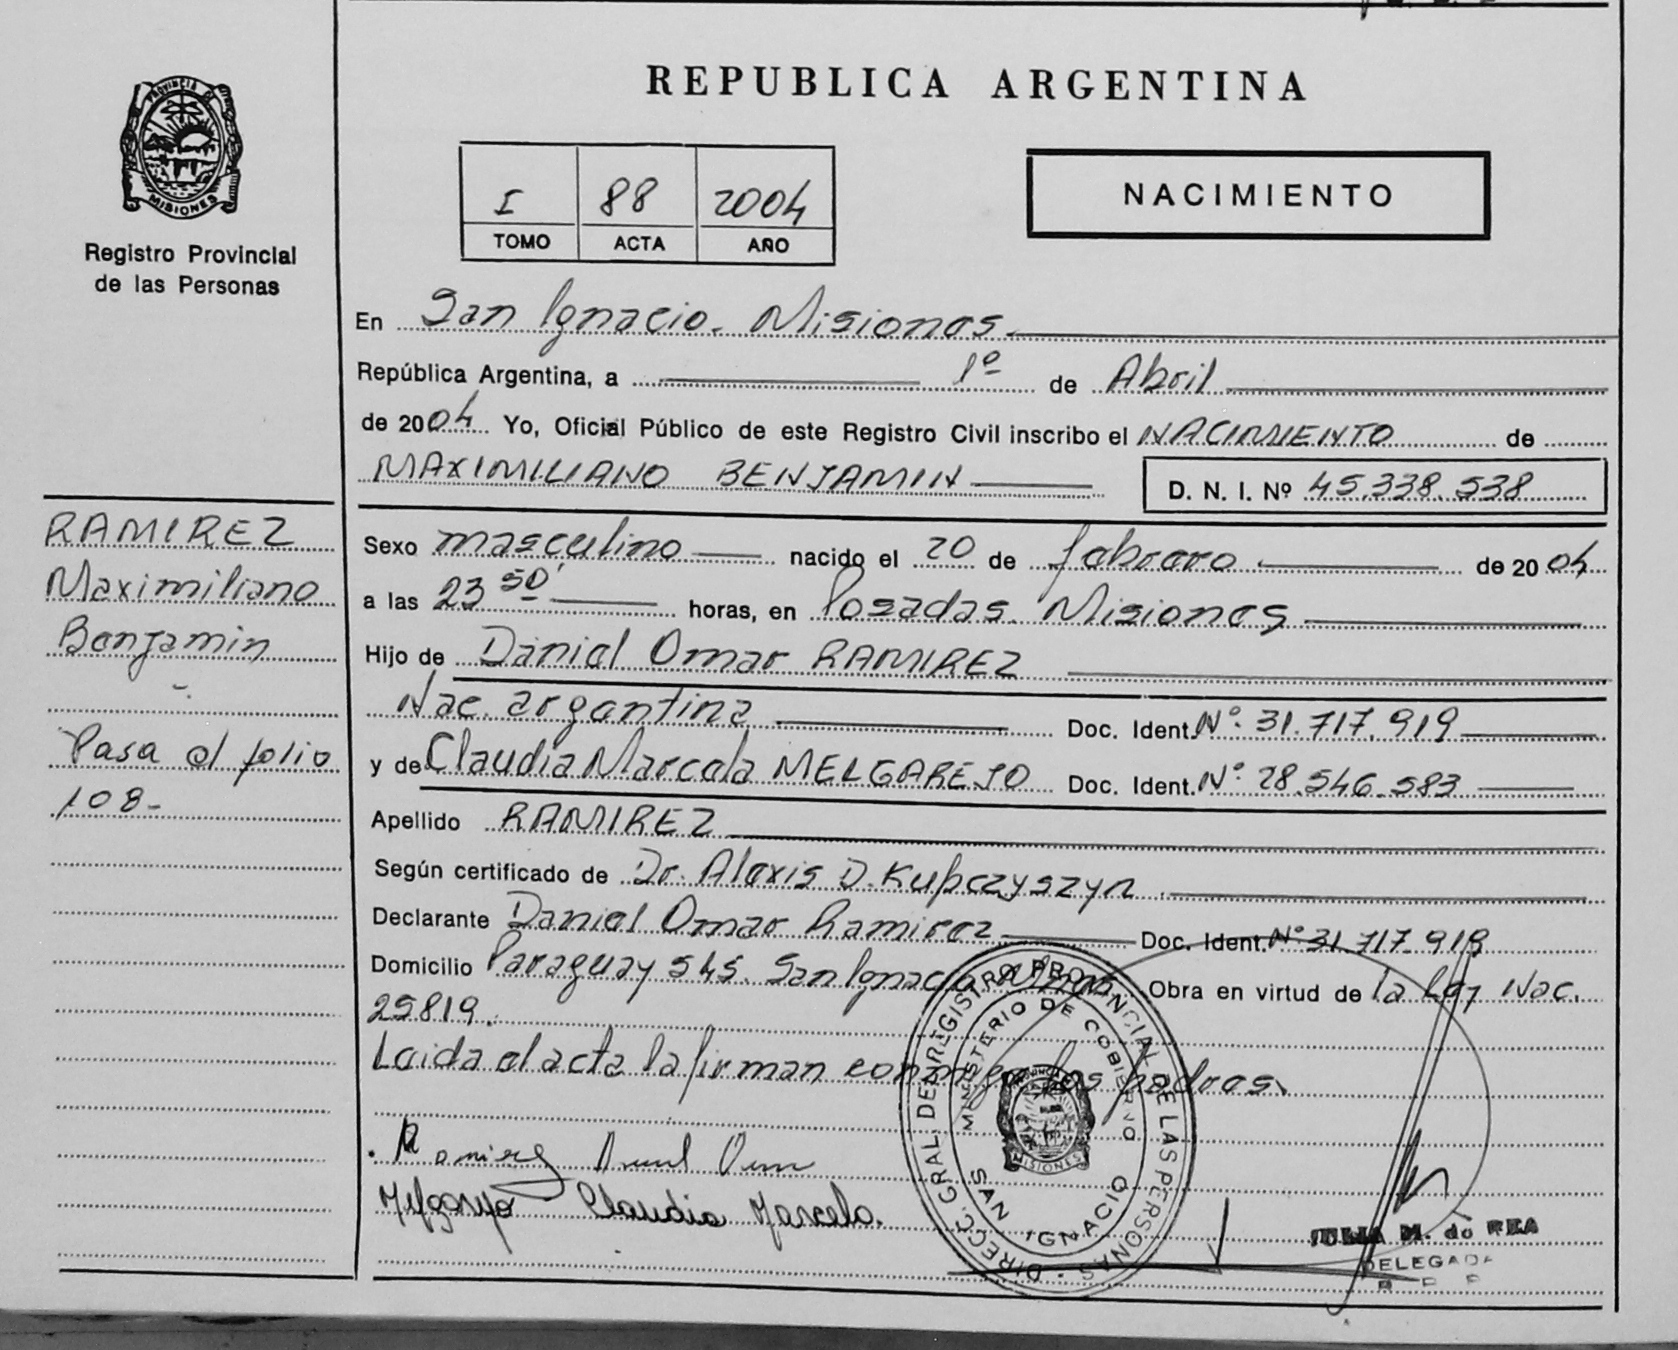 REPUBLICA ARGENTINA
PROVINCIA DE
MISIONES
Registro Provincial
de las Personas
I 88 2004
TOMO ACTA AÑO
NACIMIENTO
En San Ignacio. Misiones.
República Argentina, a 1º de Abril
de 2004 Yo, Oficial Público de este Registro Civil inscribo el NACIMIENTO de
MAXIMILIANO BENJAMIN D. N. I. Nº 45.338.538
RAMIREZ
Maximiliano
Benjamin
Pasa al folio
108-
Sexo masculino nacido el 20 de febrero de 2004
a las 23 50' horas, en Posadas. Misiones
Hijo de Daniel Omar RAMIREZ
Nac. argentina Doc. Ident. Nº. 31.717.919
y de Claudia Marcela MELGAREJO Doc. Ident. Nº. 28.546.583
Apellido RAMIREZ
Según certificado de Dr. Alexis D. Kupczyszyn
Declarante Daniel Omar Ramirez Doc. Ident. Nº 31.717.919
Domicilio Paraguay 545. San Ignacio Obra en virtud de la Ley Nac.
25819.
Leida el acta la firman los padres.
Ramirez Daniel Omar
Melgarejo Claudia Marcela.
DIRECC. GRAL. DEL REGISTRO PROVINCIAL DE LAS PERSONAS
MINISTERIO DE GOBIERNO
SAN IGNACIO
MISIONES
JULIA M. de REA
DELEGADA